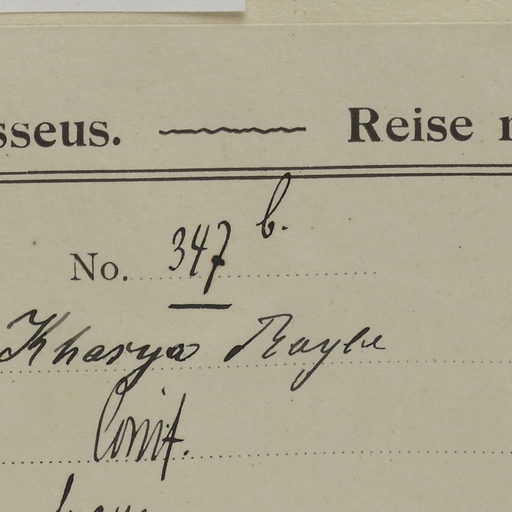 sseus. Reise
No. 347 b.
Kharya Royle
Conif.